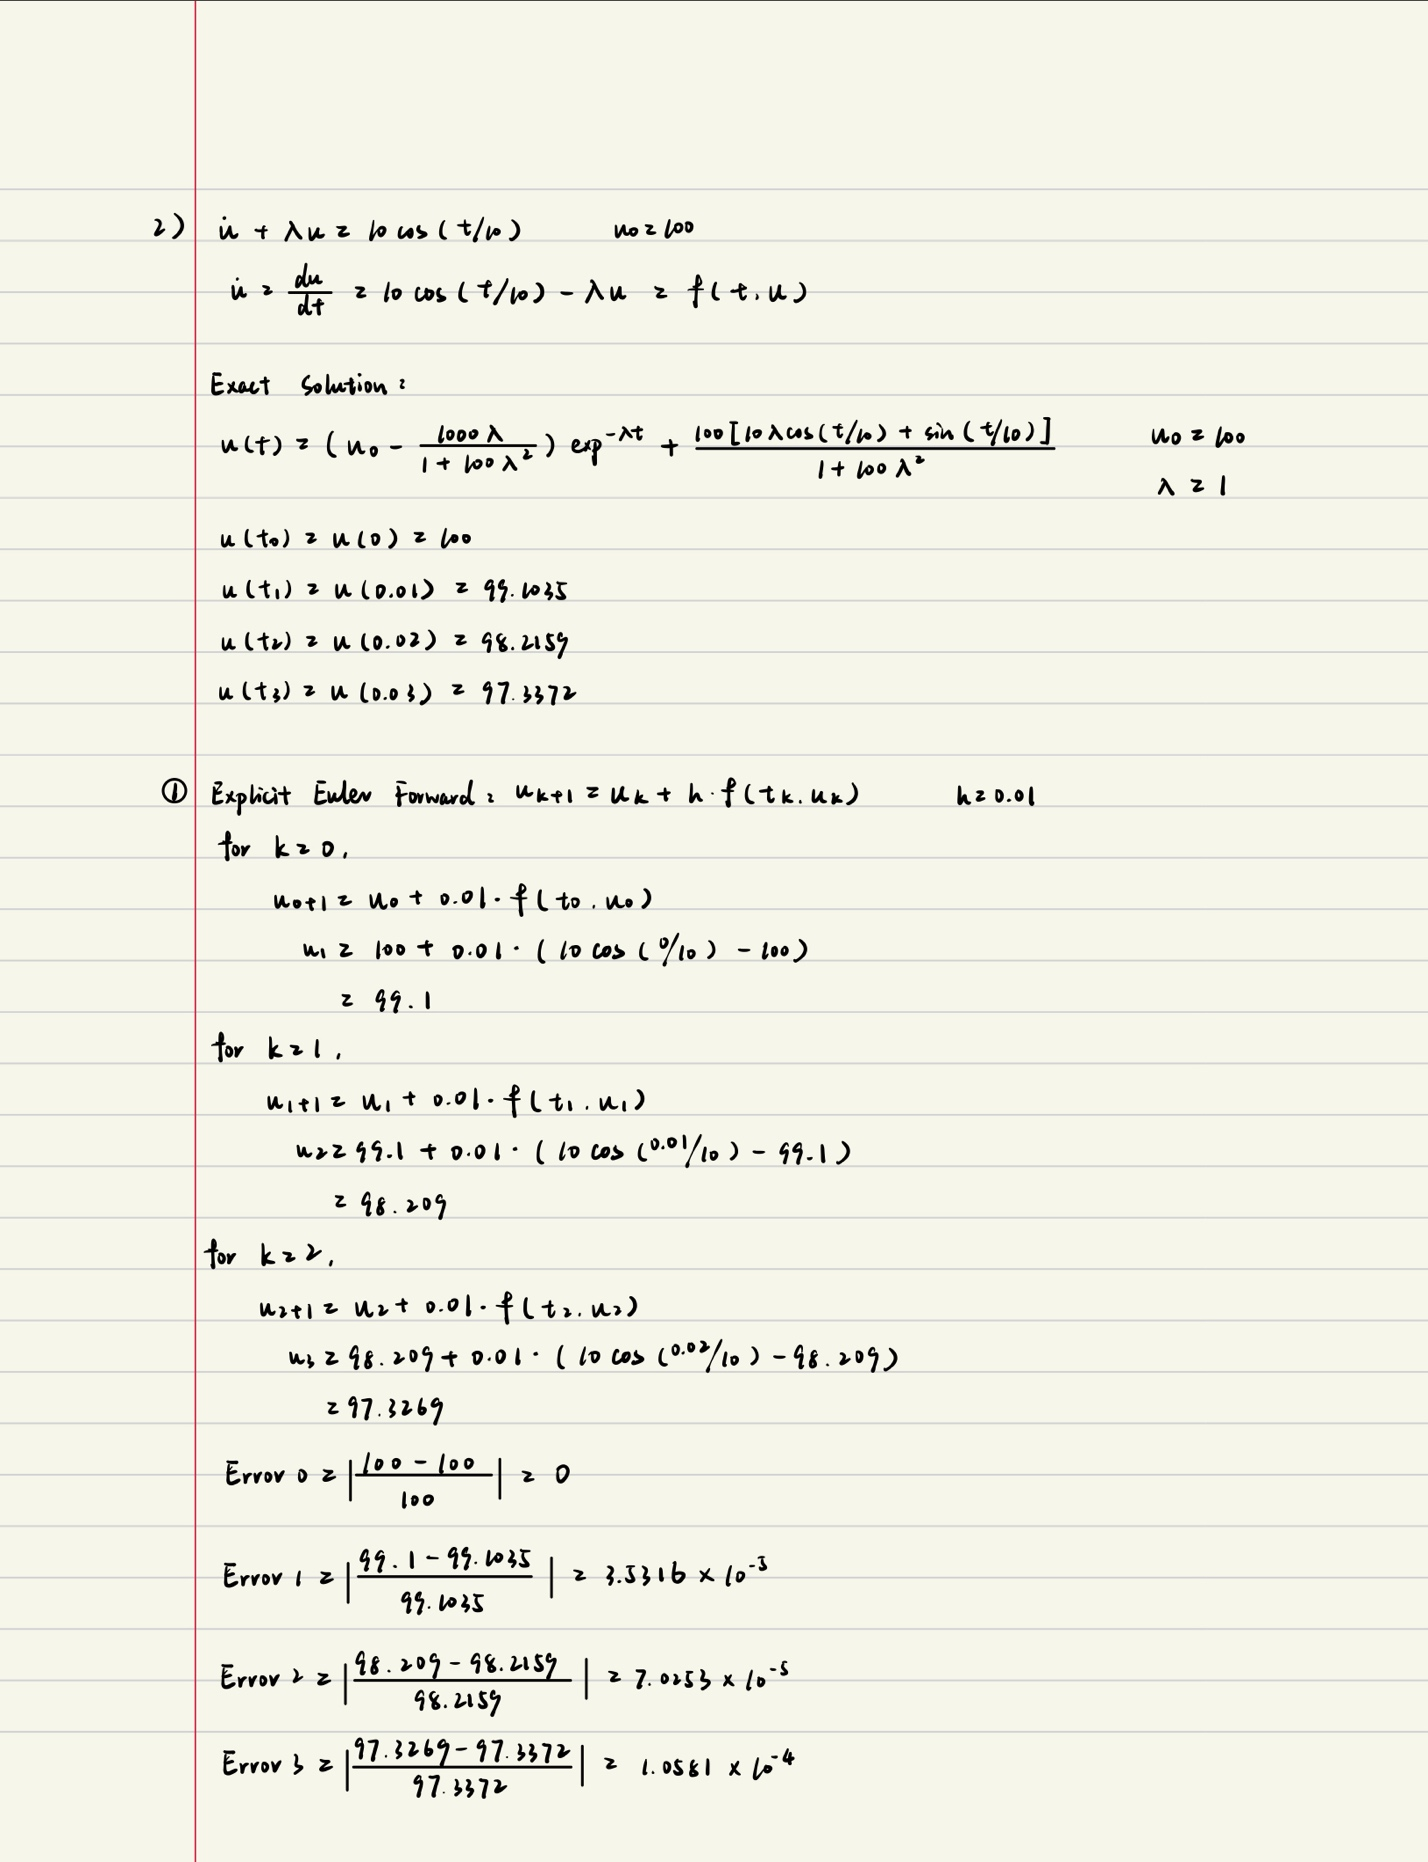 2) u̇ + λu = 10 cos(t/10)    u₀ = 100
u̇ = du/dt = 10 cos(t/10) - λu = f(t, u)
Exact Solution:
u(t) = (u₀ - 1000λ/(1 + 100λ²)) exp^(-λt) + 100[10λcos(t/10) + sin(t/10)]/(1 + 100λ²)    u₀ = 100
λ = 1
u(t₀) = u(0) = 100
u(t₁) = u(0.01) = 99.1035
u(t₂) = u(0.02) = 98.2159
u(t₃) = u(0.03) = 97.3372
① Explicit Euler Forward: u_{k+1} = u_k + h·f(t_k, u_k)    h = 0.01
for k = 0,
u_{0+1} = u₀ + 0.01·f(t₀, u₀)
u₁ = 100 + 0.01·(10 cos(0/10) - 100)
= 99.1
for k = 1,
u_{1+1} = u₁ + 0.01·f(t₁, u₁)
u₂ = 99.1 + 0.01·(10 cos(0.01/10) - 99.1)
= 98.209
for k = 2,
u_{2+1} = u₂ + 0.01·f(t₂, u₂)
u₃ = 98.209 + 0.01·(10 cos(0.02/10) - 98.209)
= 97.3269
Error 0 = |(100 - 100)/100| = 0
Error 1 = |(99.1 - 99.1035)/99.1035| = 3.5316 × 10⁻⁵
Error 2 = |(98.209 - 98.2159)/98.2159| = 7.0253 × 10⁻⁵
Error 3 = |(97.3269 - 97.3372)/97.3372| = 1.0581 × 10⁻⁴